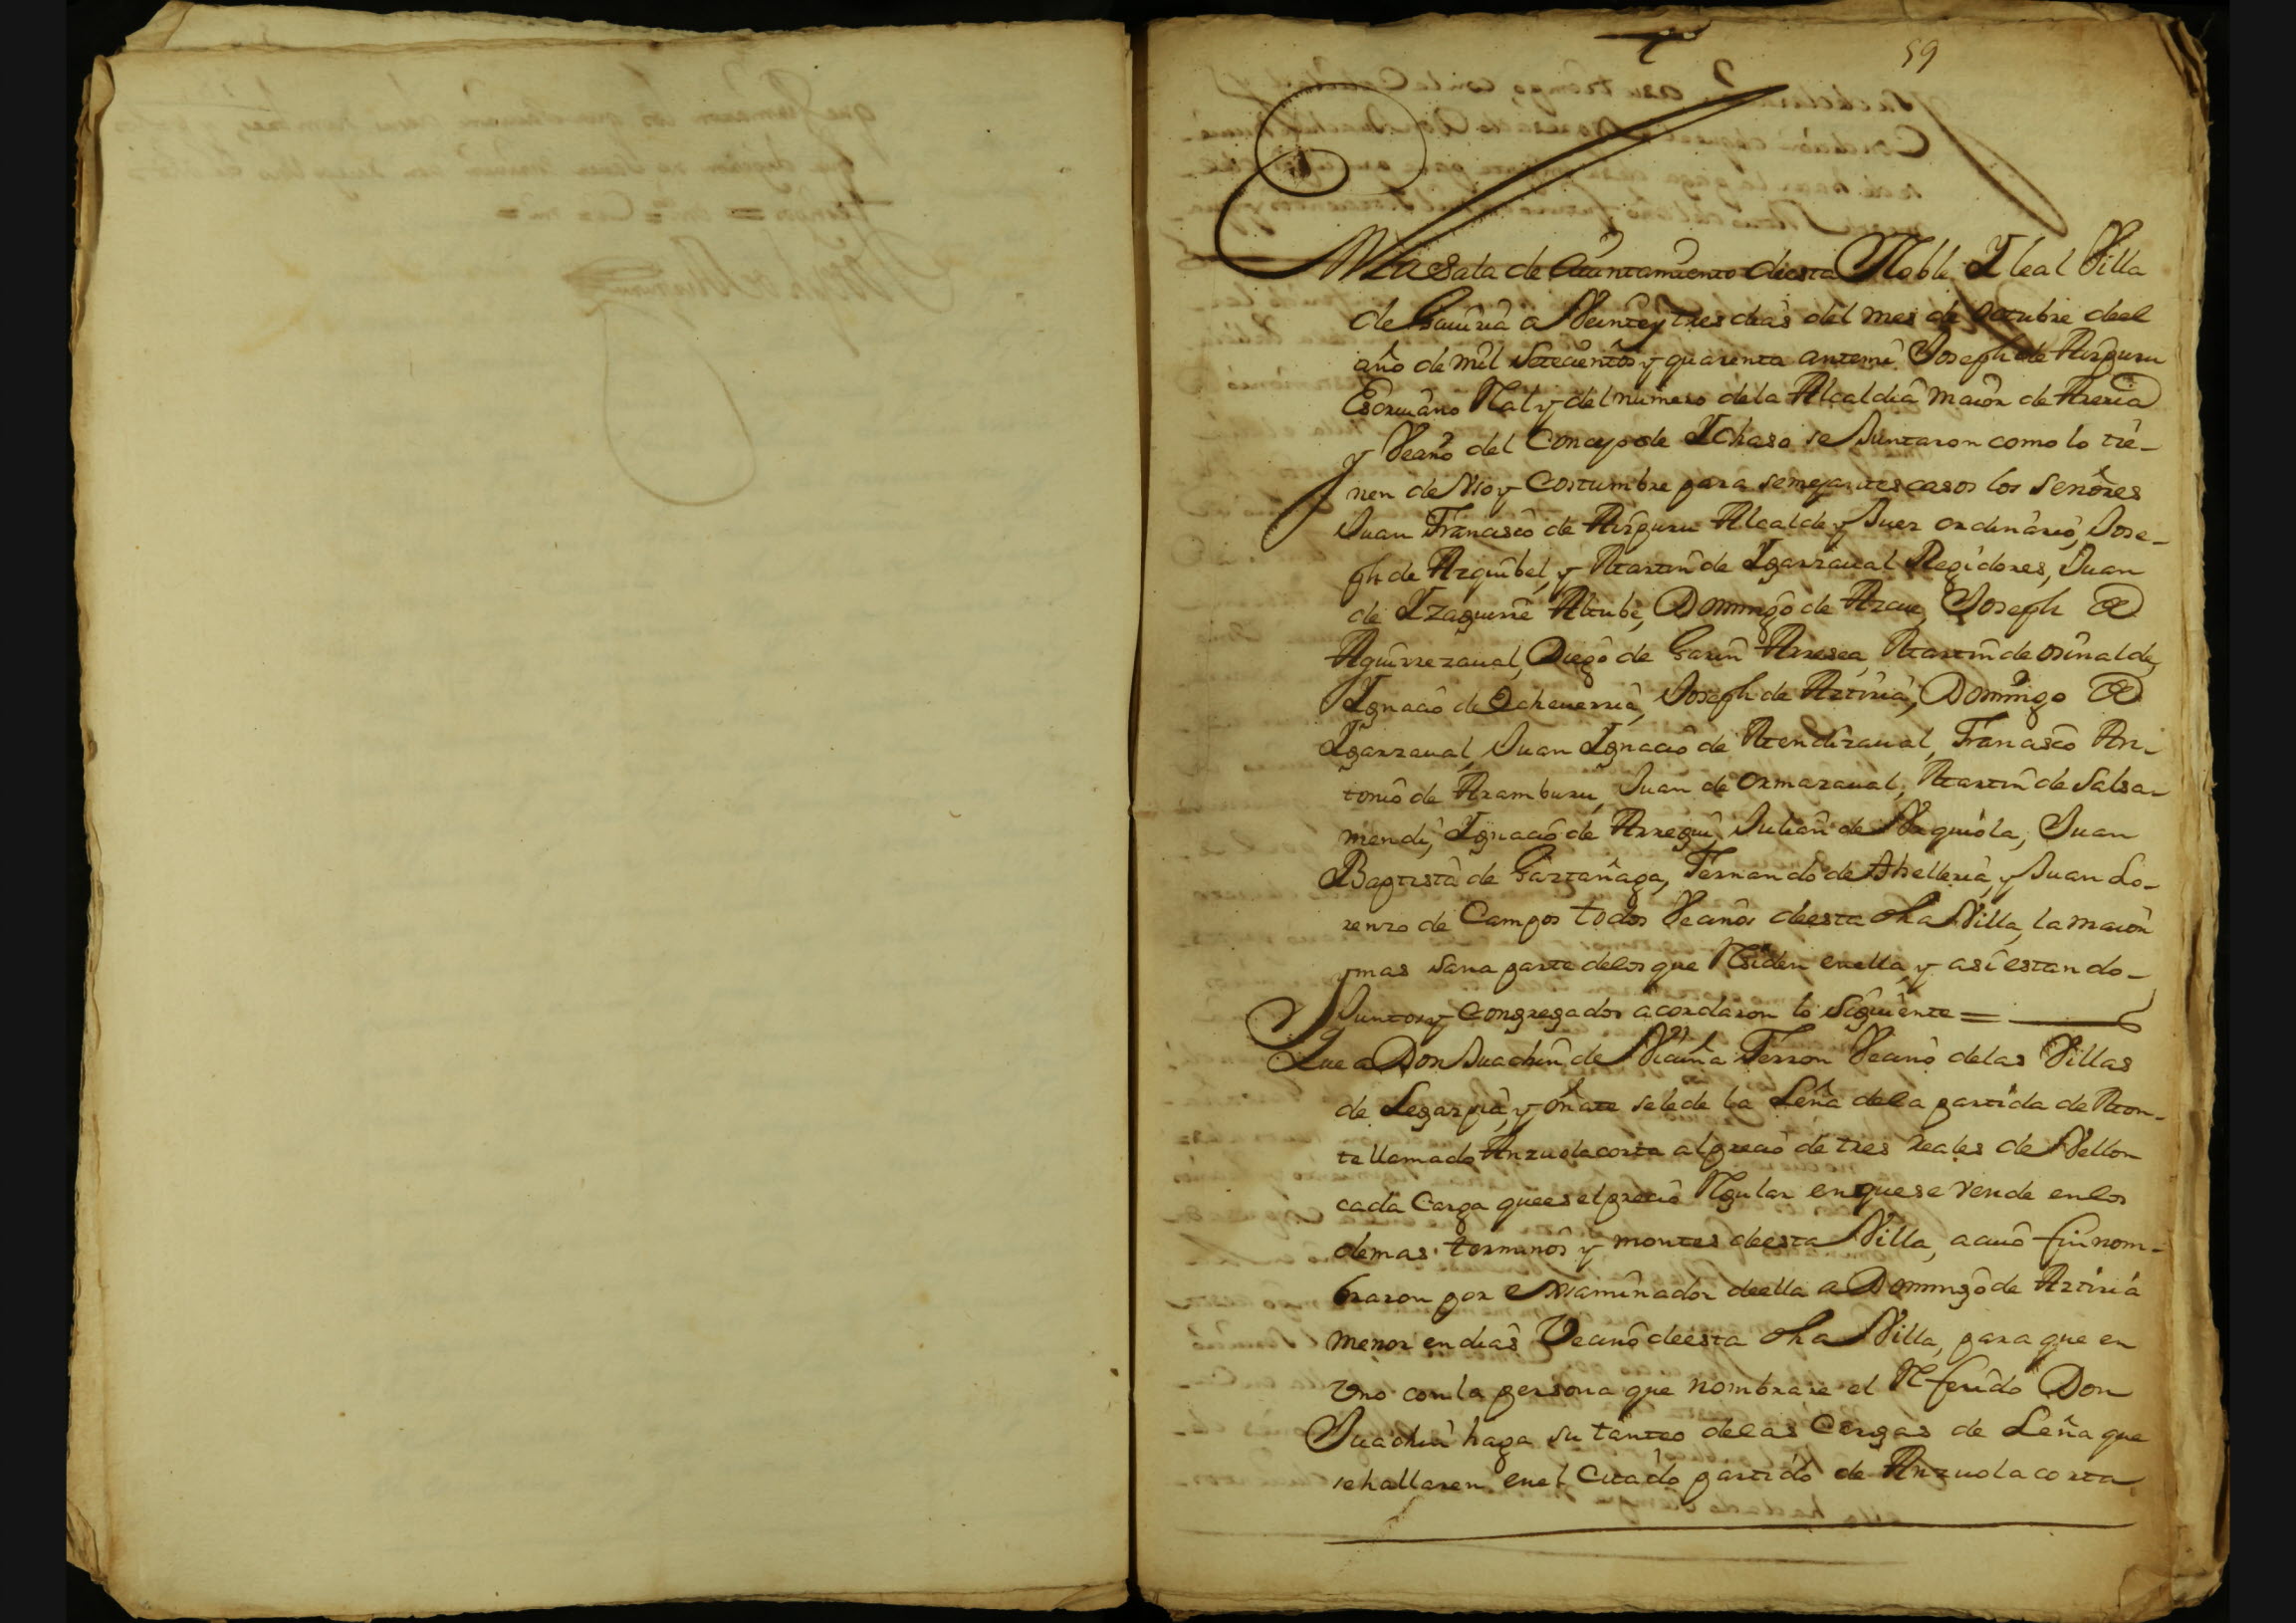 59
En la Sala de Aiuntamiento de esta Noble Y leal Villa
de Gauiria a Veinte y tres dias del mes de octubre deel
año de mil Setecientos y quarenta antemi Joseph de Aispuru
Escriuano Rl y del numero de la Alcaldia maior de Areria
y Vezno del Concejo de Ychaso se Juntaron como lo tie-
nen de Vso y Costumbre para semejantes casos los señores
Juan Francisco de Aispuru Alcalde y Juez ordinario, Jose-
ph de Azquibel, y Martin de Ygarzaual Regidores, Juan
de Yzaguirre Altube, Domingo de Arcue, Joseph de
Aguirrezaual, Diego de Garin Arresea, Martin de osinalde,
Ygnacio de Echeuerria, Joseph de Artiria, Domingo de
Ygarzaual, Juan Ygnacio de Mendizaual, Francisco An-
tonio de Aramburu, Juan de ormazaual, Martin de Salsa-
mendi, Ygnacio de Arregui, Julian de Vrquiola, Juan
Baptista de Gartañaga, Fernando de Thelleria, y Juan Lo-
renzo de Campos todos Vecinos deesta dha Villa, la maior
y mas sana parte delos que Residen en ella, y asi estando-
Juntos y Congregados acordaron lo siguiente =
Que a Don Juachin de Vicuña Ferron Vecino delas Villas
de Legazpia, y oñate sele de la Leña dela partida de Mon-
te llamado Anzuolacorta al precio de tres reales de Vellon
cada Carga que es el precio Regular en que se vende en los
demas terminos y montes deesta Villa, a cuio fin nom-
braron por Examinador deella a Domingo de Artiria
menor en dias Vecino deesta dha Villa, para que en
Vno con la persona que nombrare el Referido Don
Juachin haga su tanteo delas Cargas de Leña que
se hallaren en el Citado partido de Anzuolacorta